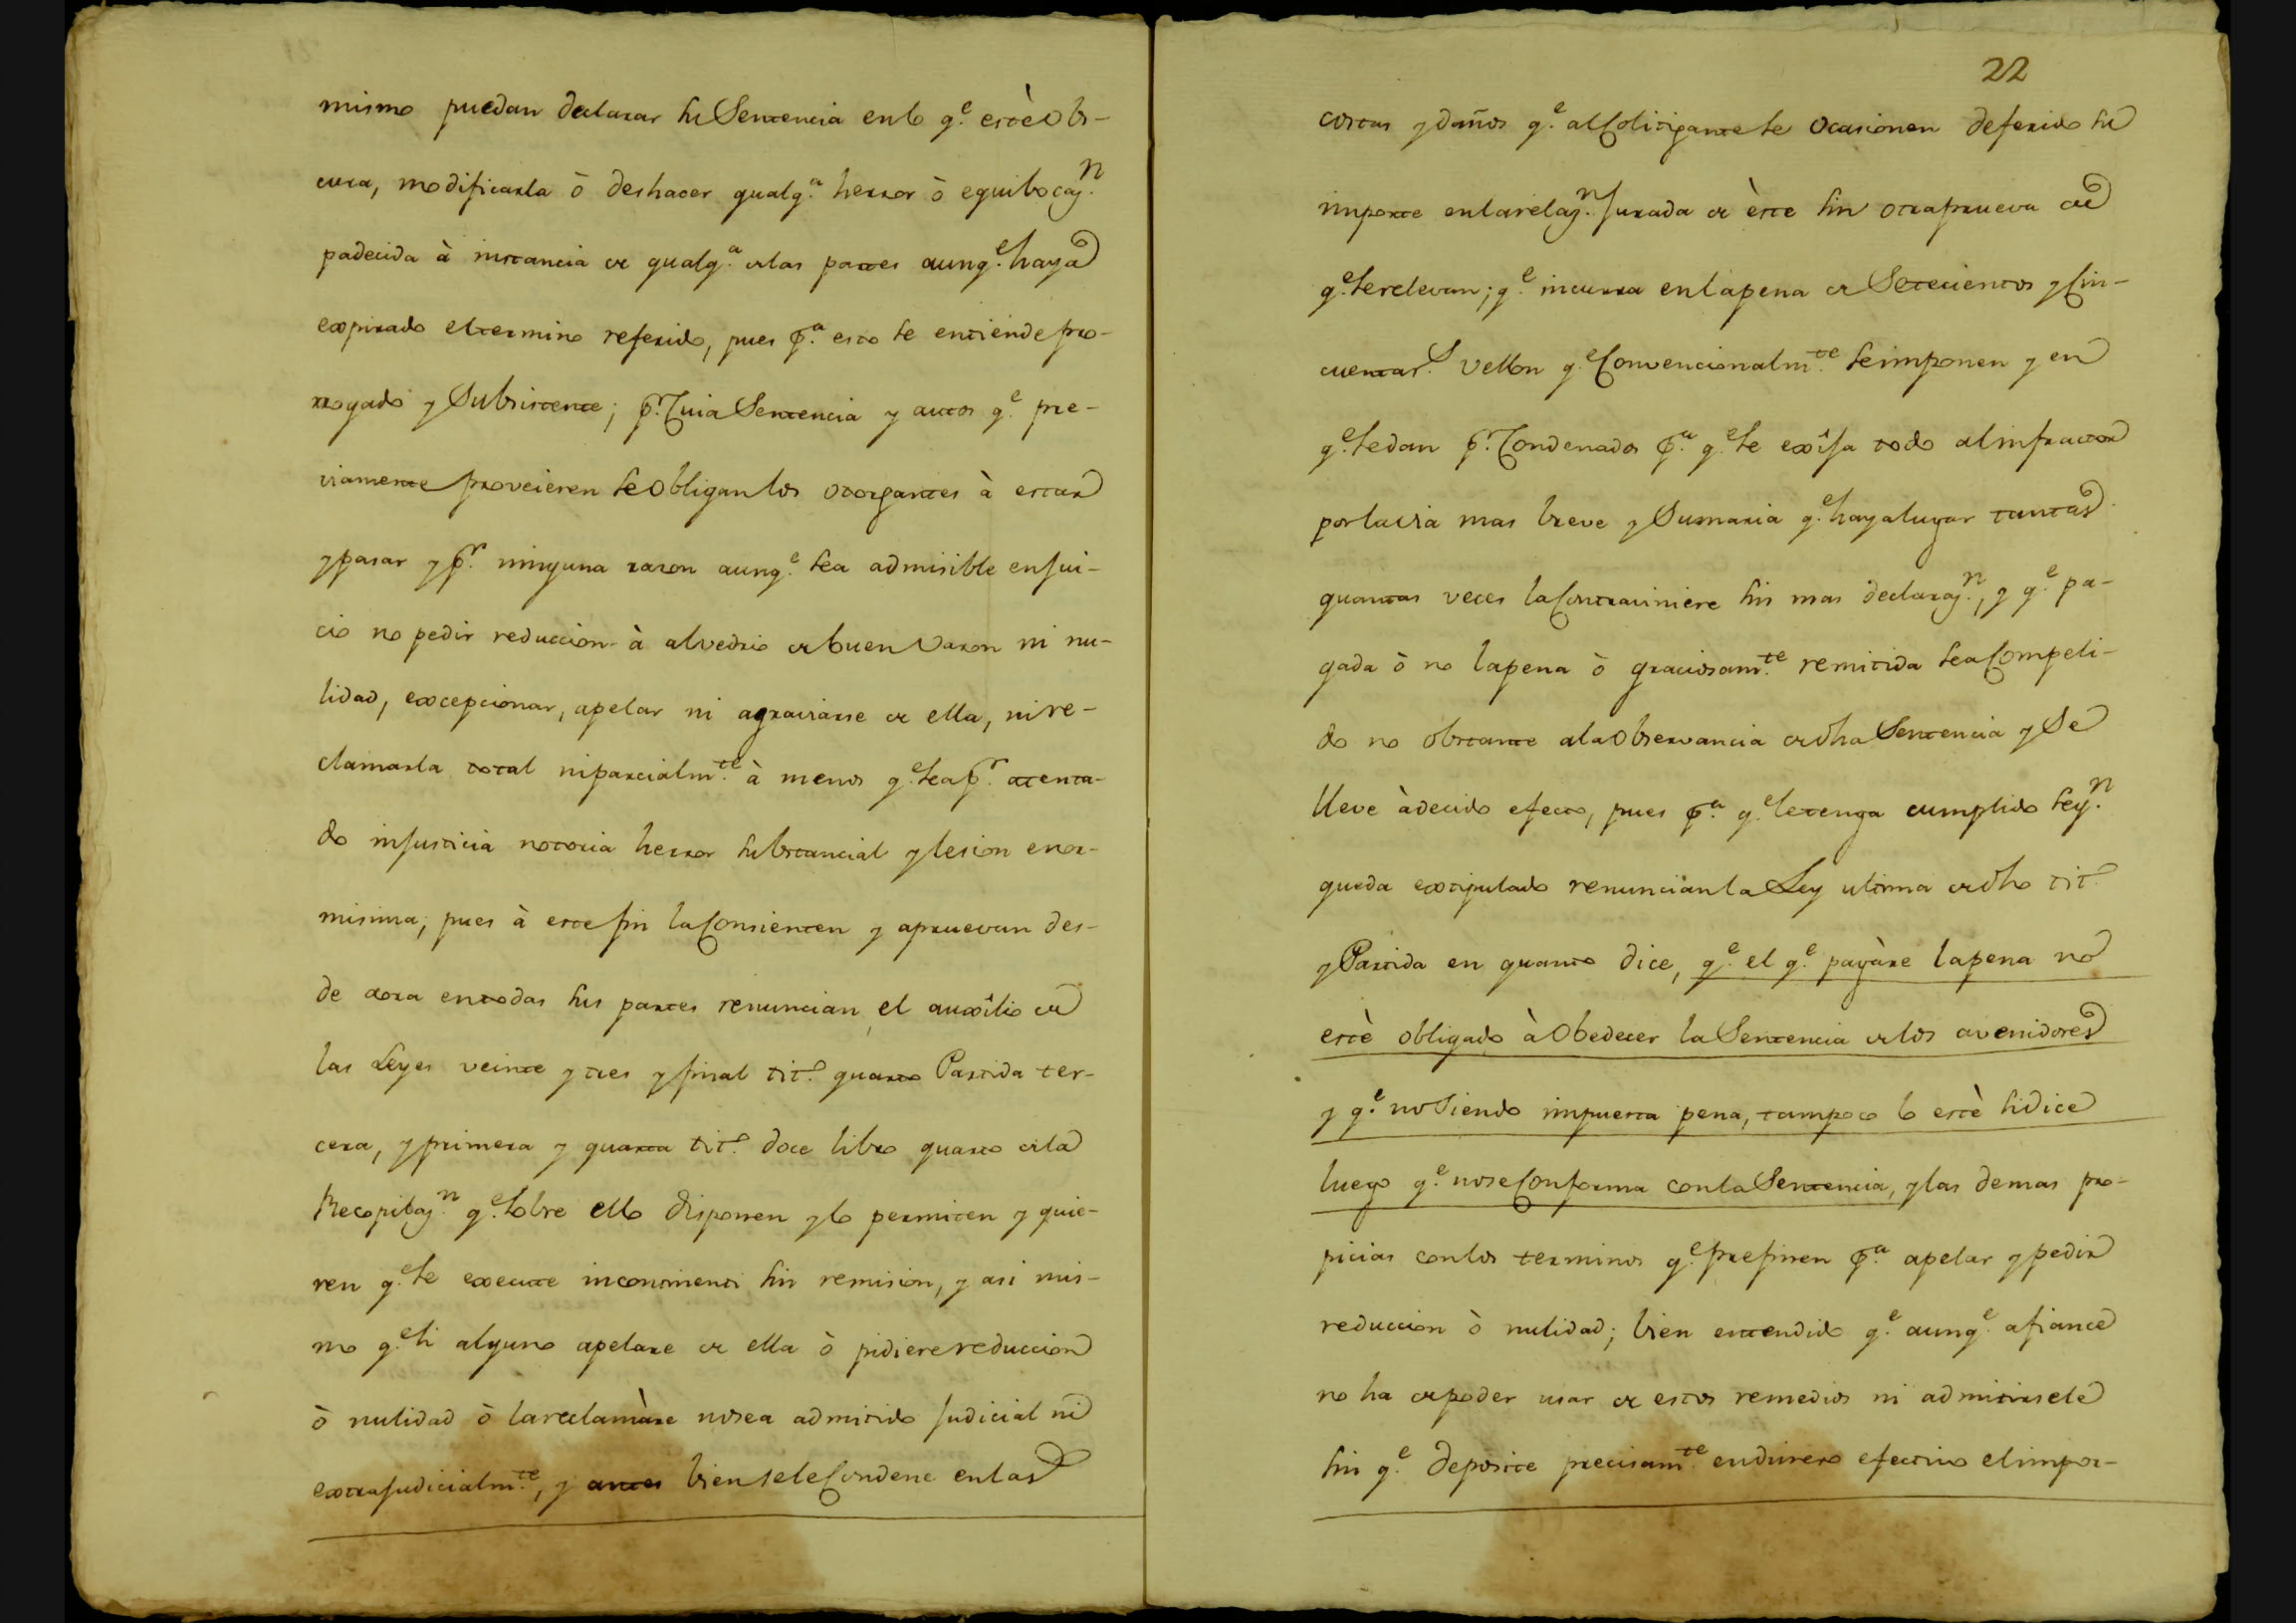 mismo puedan declarar su Sentencia enlo q.e estè Obs-
cura, modificarla ò deshacer qualq.a herror ò equibocaz.n
padecida à instancia de qualq.a delas partes aunq.e haya
expirado eltermino referido, pues p.a esto se entiende pro-
rrogado y Subsistente; p.r Cuia Sentencia y autos q.e pre-
viamente proveieren se Obligan los otorgantes à estar
y pasar y p.r ninguna razon aunq.e sea admisible en Jui-
cio no pedir reduccion à alvedrio de buen Varon ni nu-
lidad, excepcionar, apelar ni agraviarse de ella, ni re-
clamarla total ni parcialm.te à menos q.e sea p.r atenta-
do injusticia notoria herror substancial y lesion enor-
misima; pues à este fin la Consienten y apruevan des-
de aora entodas sus partes renuncian el auxîlio de
las Leyes veinte y tres y final tit.o quarto Partida ter-
cera, y primera y quarta tit.o doce libro quarto dela
Recopilaz.n q.e sobre ello disponen y lo permiten y quie-
ren q.e se execute incontinenti sin remision, y asi mis-
mo q.e si alguno apelare de ella ò pidiere reduccion
ò nulidad ò la reclamàre nosea admitido Judicial ni
extrajudicialm.te, y antes bien sele Condene enlas
22
costas y daños q.e al Colitigante se Ocasionen deferido su
importe enla relaz.n Jurada de èste sin otra prueva de
q.e se relevan; q.e incurra enlapena de Setecientos y Cin-
cuenta r.s vellon q.e Convencionalm.te se imponen y en
q.e se dan p.r Condenados p.a q.e se exîja todo al infractor
por la via mas breve y Sumaria q.e haya lugar tantas
quantas veces la Contraviniere sin mas declaraz.n, y q.e pa-
gada ò no lapena ò graciosam.te remitida sea Compeli-
do no obstante ala Observancia de dha Sentencia y Se
lleve àdecido efecto, pues p.a q.e setenga cumplido seg.n
queda extipulado renuncian la Ley ultima de dho tit.o
y Partida en quanto dice, q.e el q.e pagàre lapena no
estè obligado à Obedecer la Sentencia delos avenidores
y q.e no Siendo impuesta pena, tampoco lo estè si dice
luego q.e nose Conforma conla Sentencia, y las demas pro-
picias conlos terminos q.e prefinen p.a apelar y pedir
reduccion ò nulidad; bien entendido q.e aunq.e afiance
no ha de poder usar de estos remedios ni admitirsele
sin q.e deposite precisam.te endinero efectivo el impor-